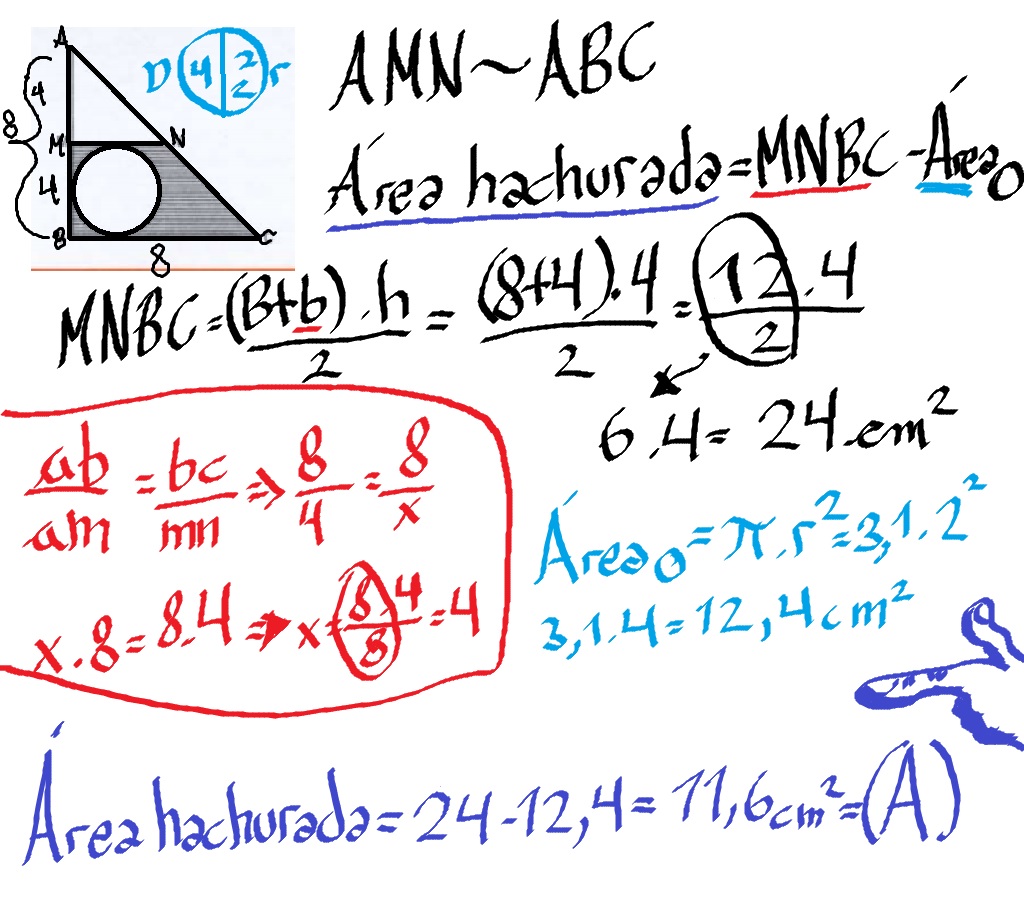 A
4
8
M
N
4
B
8
C
D 4 2 2 r
AMN~ABC
Área hachurada=MNBC-Área0
MNBC=(B+b).h/2=(8+4).4/2=12.4/2
6.4=24cm²
ab/am=bc/mn=>8/4=8/x
x.8=8.4=>x=8.4/8=4
Área0=π.r²=3,1.2²
3,1.4=12,4cm²
Área hachurada=24-12,4=11,6cm²=(A)